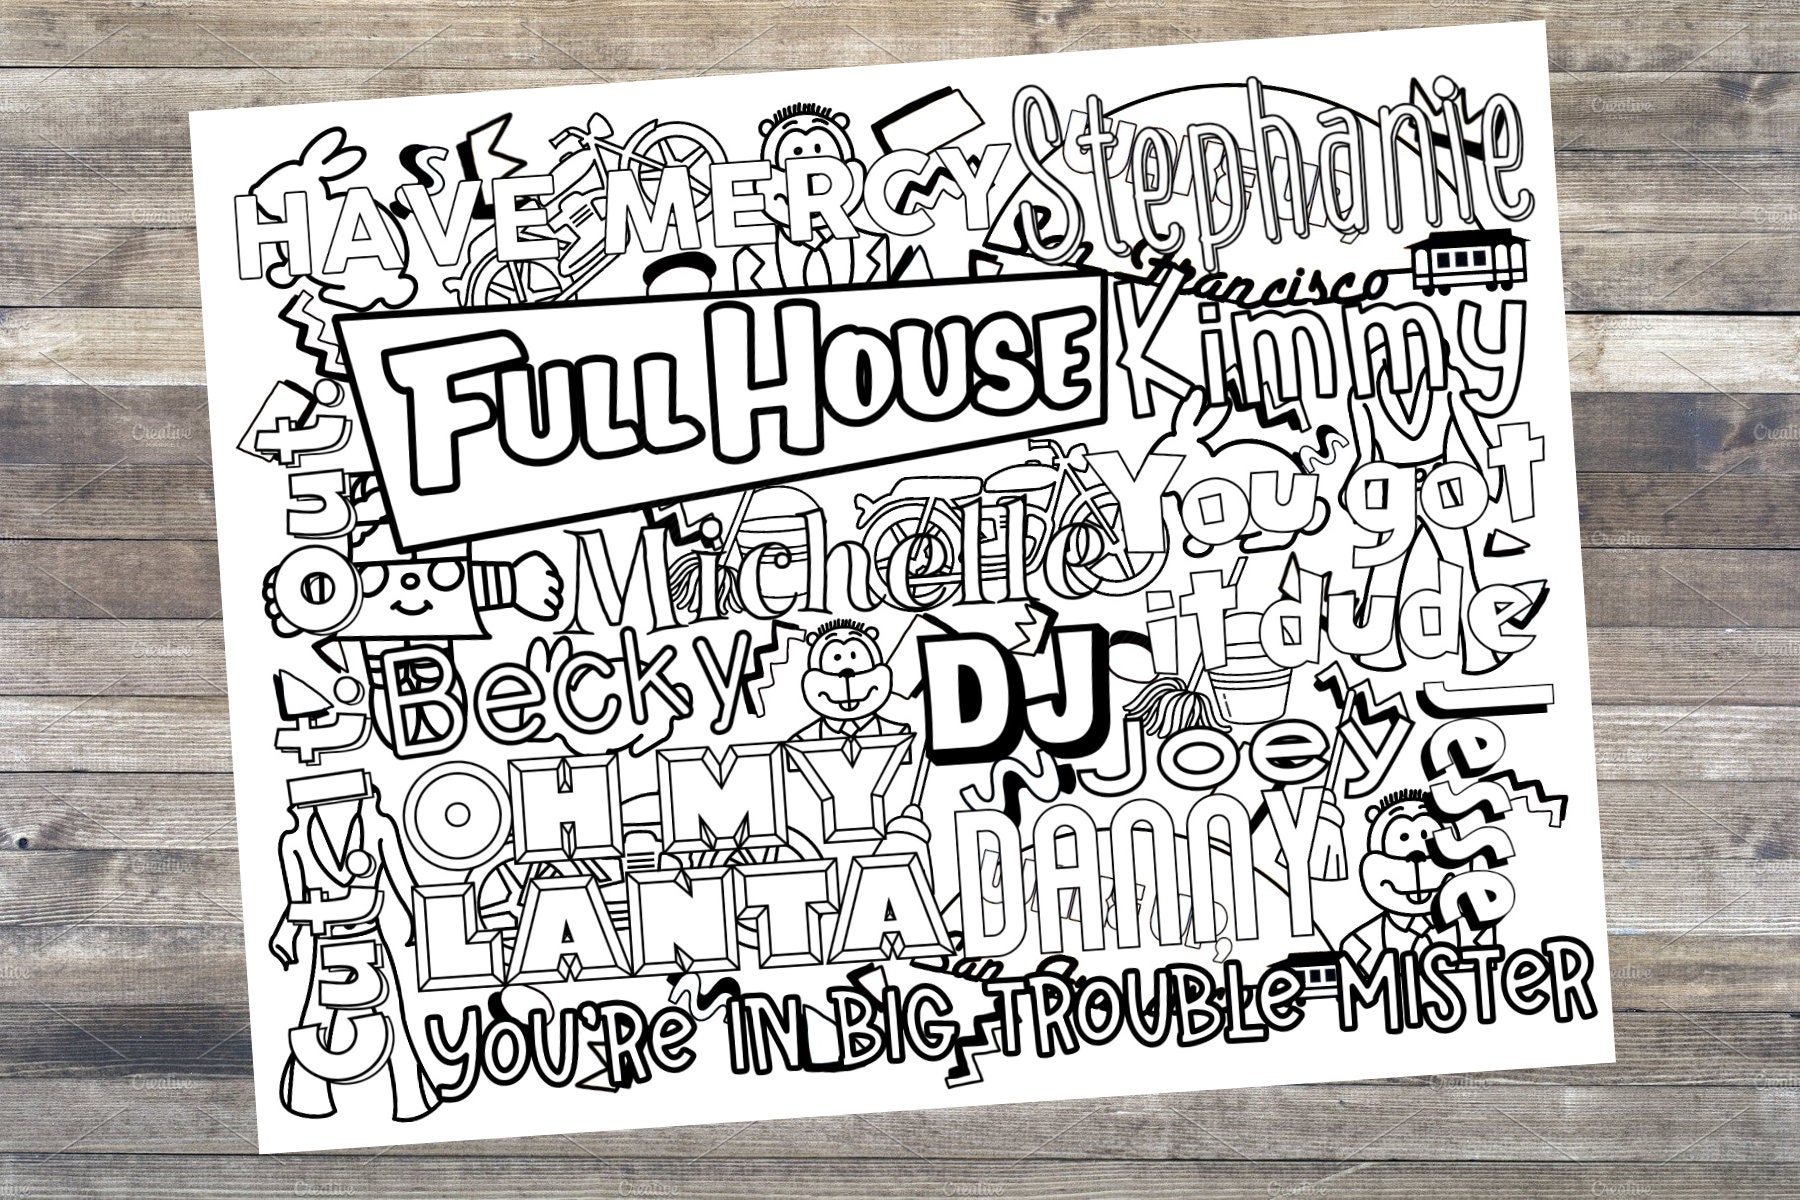 HAVE MERCY
Stephanie
San Francisco
FULL HOUSE
Kimmy
Cut. it. out.
Michelle
You got
it dude
Becky
DJ
Joey
Jesse
OH MY
LANTA
DANNY
YOU'RE IN BIG TROUBLE MISTER
Creative